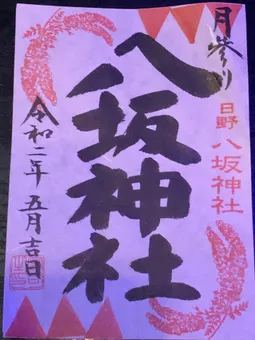 月参り
日野
八坂神社
八坂神社
令和二年 五月吉日